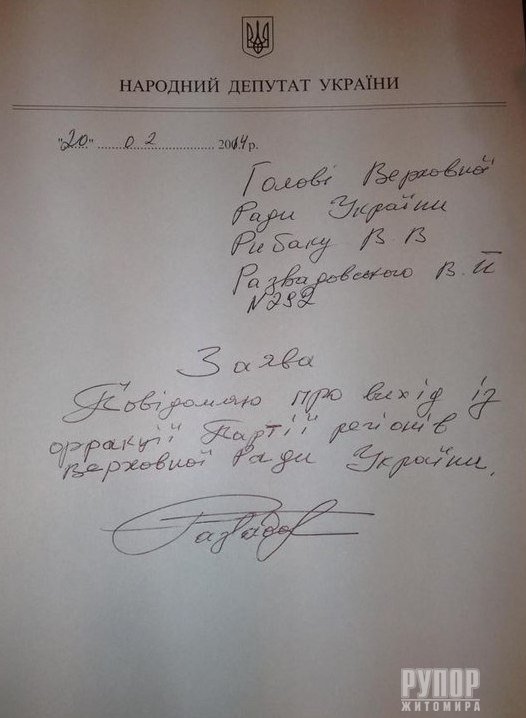 НАРОДНИЙ ДЕПУТАТ УКРАЇНИ
"20" 02 2014 р.
Голові Верховної
Ради України
Рибаку В. В
Развадовського В. Й
N 292
Заява
Повідомляю про вихід із
фракції Партії регіонів
Верховної Ради України.
Развадов
РУПОР
ЖИТОМИРА